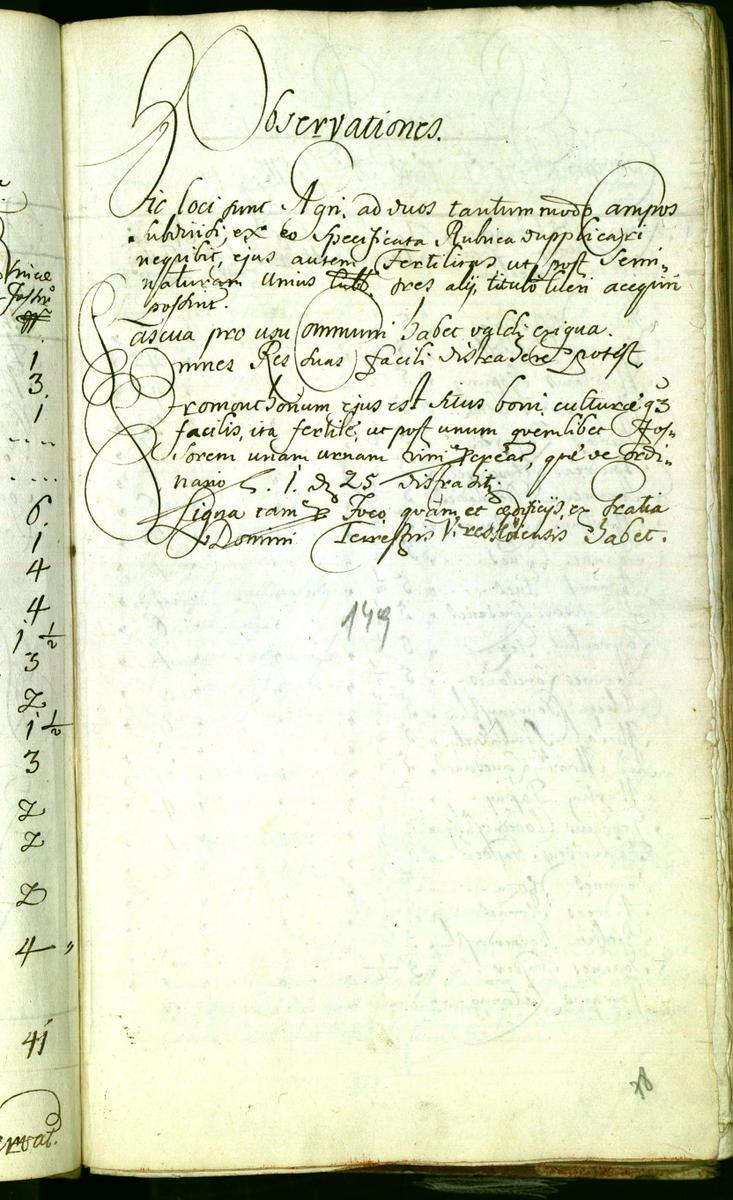 Observationes.
Hic loci sunt Agri, ad duos tantum modo Campos
subdividi, ex eo Specificata Rubica dupplicari
nequibit, ejus autem Fertilitas ut post Semi-
naturam Unius Cub: tres alij, titulo lucri acquiri
possint.
Pascua pro usu Communi habet valde exigua.
Omnes Res suas facili distrahere potest
Promonthorium ejus est situs boni, culturæ q3
facilis, ita fertile, ut post unum quemlibet Fos-
sorem unam urnam vini repéat, que de ordi-
nario f. 1. d 25 distrahit.
Ligna tam p Foco, quàm et ædificijs, ex gratia
Domini Terrestris habet.
149
78
1
3.
1
6.
1
4
4
1 1/2
3
2
1 1/2
3
2
2
2
4 "
41
ervat.